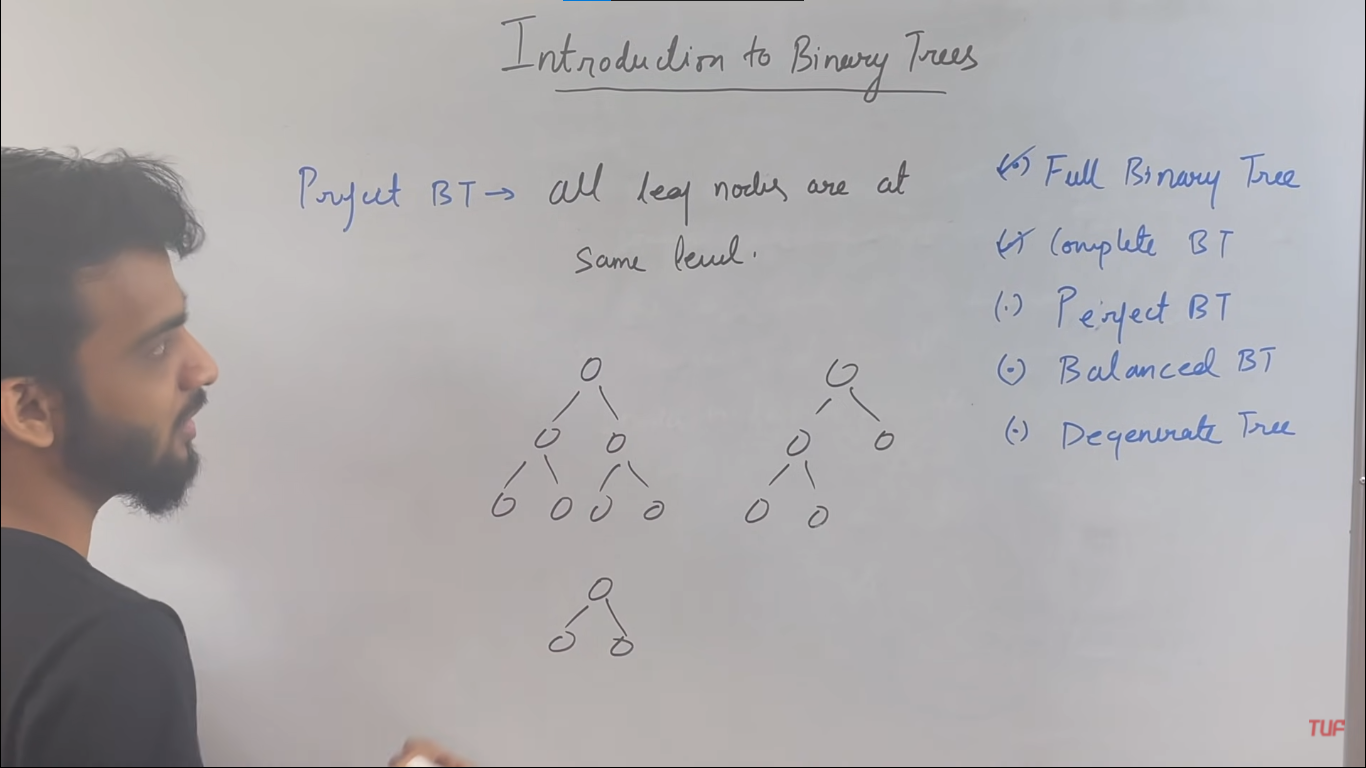 Introduction to Binary Trees
Perfect BT → all leaf nodes are at
same level.
(·) Full Binary Tree
(·) Complete BT
(·) Perfect BT
(·) Balanced BT
(·) Degenerate Tree
TUF